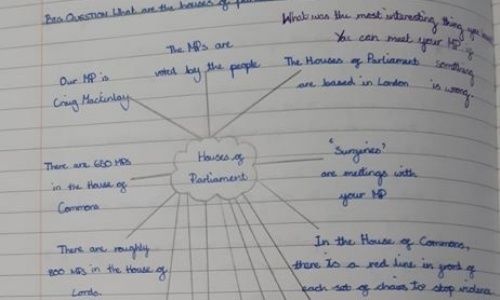 BIG QUESTION What are the houses of
What was the most interesting thing you
You can meet your MP if
something
is wrong.
The MPs are
voted by the people
Our MP is
Craig Mackinlay
The Houses of Parliament
are based in London
Houses of
Parliament
There are 650 MPs
in the House of
Commons
"Surgeries"
are meetings with
your MP
There are roughly
800 MPs in the House of
Lords.
In the House of Commons,
there is a red line in front of
each set of chairs to stop